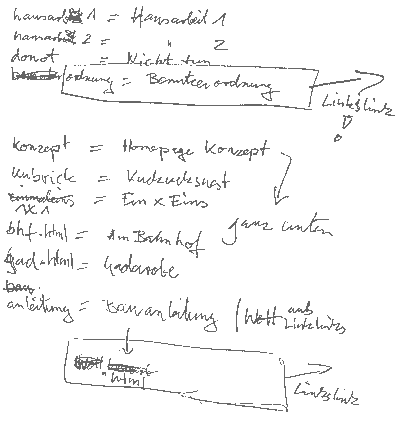 hausarb 1 = Hausarbeit 1
hausarb 2 = " 2
donot = Nicht tun
ordnung = Benutzerordnung
Linkslink
konzept = Homepage Konzept
kubrick = Kuckucksnest
1x1 = Ein x Eins
ganz unten
bhf.html = Am Bahnhof
gad.html = Gadarobe
anleitung = Bauanleitung / Wott aus Linkslinks
html
Linkslink